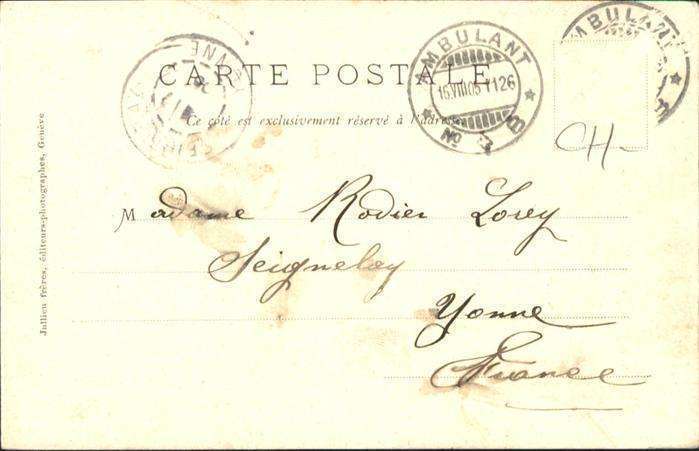 AMBULANT
AMBULANT
16.VIII.05 1126
No
YONNE
CARTE POSTALE
Ce côté est exclusivement réservé à l'adresse
CH-
Madame Rodier Lorey
Seignelay
Yonne
France
Jullien frères, éditeurs-photographes, Genève